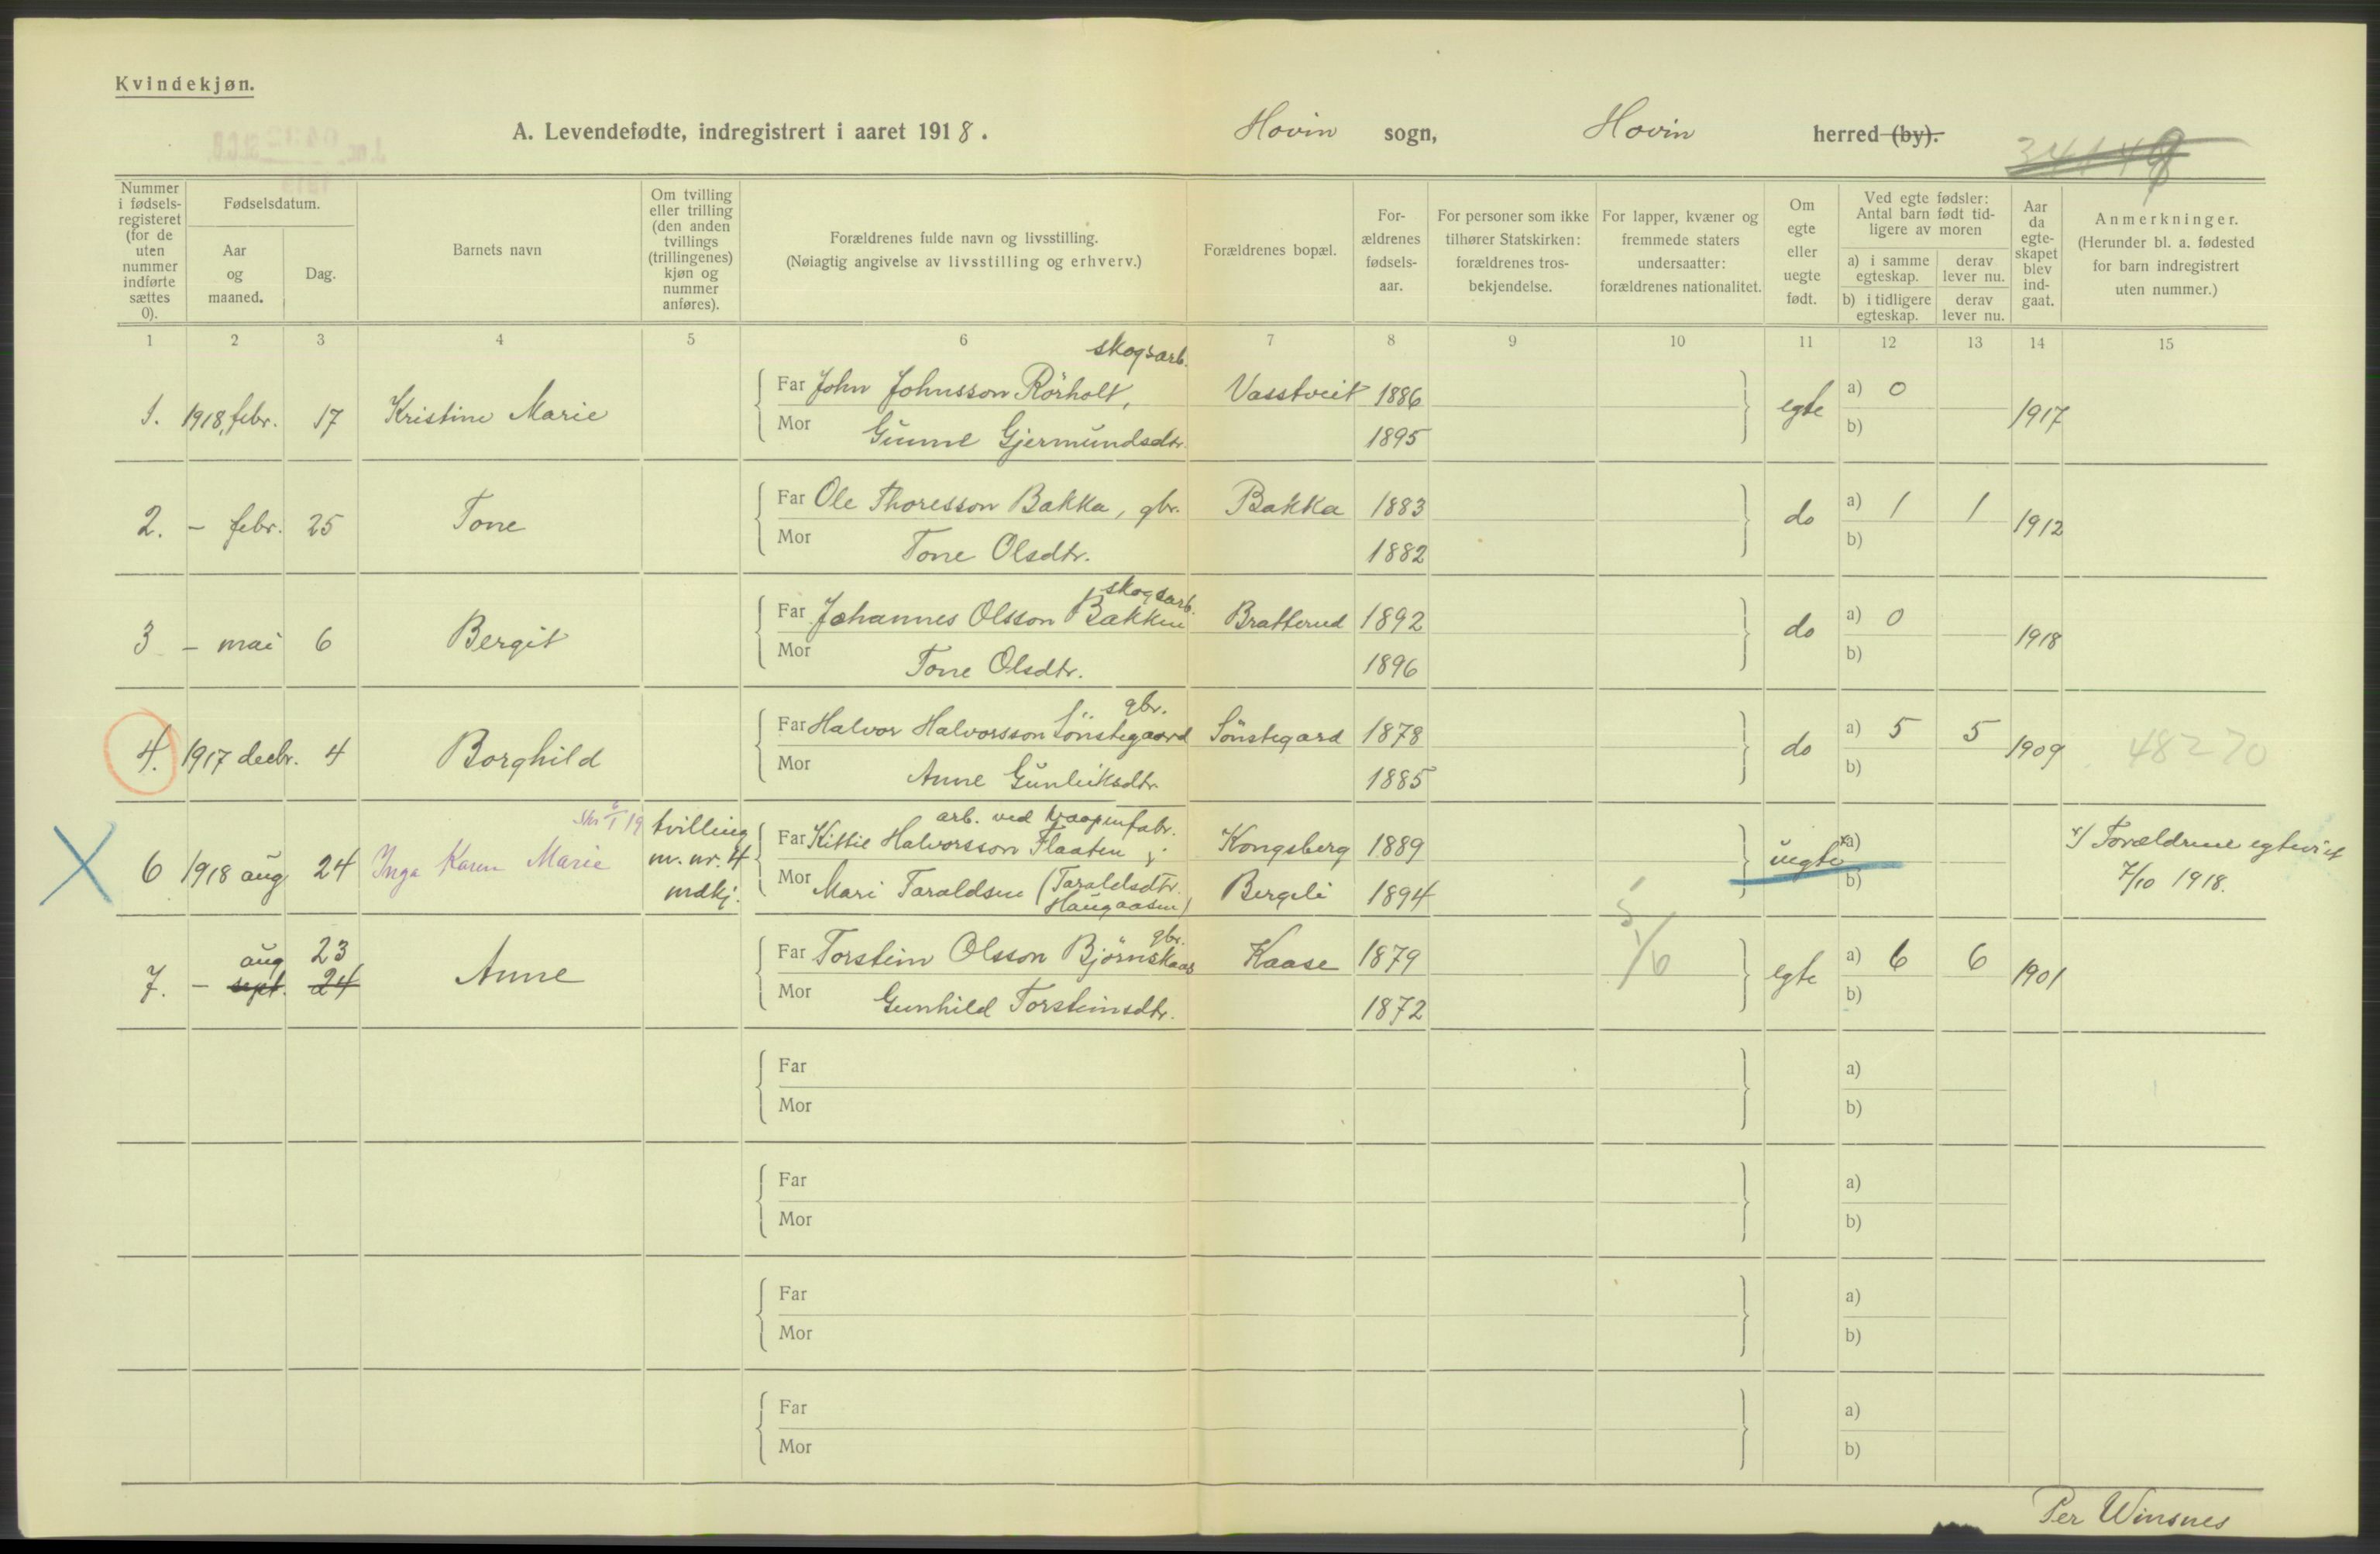 Kvindekjøn.
A. Levendefødte, indregistrert i aaret 1918. Hovin sogn, Hovin herred (by).
Nummer i fødselsregisteret (for de uten nummer indførte sættes 0).
Fødselsdatum.
Aar og maaned.
Dag.
Barnets navn
Om tvilling eller trilling (den anden tvillings (trillingenes) kjøn og nummer anføres).
Forældrenes fulde navn og livsstilling.
(Nøiagtig angivelse av livsstilling og erhverv.)
Forældrenes bopæl.
Forældrenes fødselsaar.
For personer som ikke tilhører Statskirken: forældrenes trosbekjendelse.
For lapper, kvæner og fremmede staters undersaatter: forældrenes nationalitet.
Om egte eller uegte født.
Ved egte fødsler: Antal barn født tidligere av moren
a) i samme egteskap. derav lever nu.
b) i tidligere egteskap. derav lever nu.
Aar da egteskapet blev indgaat.
Anmerkninger.
(Herunder bl. a. fødested for barn indregistrert uten nummer.)
1 2 3 4 5 6 7 8 9 10 11 12 13 14 15
skogsarb.
1. 1918, febr. 17 Kristine Marie Far John Johnsson Rörholt, Vasstveit 1886 egte a) 0 1917
Mor Gunne Gjermundsdtr. 1895 b)
2. – febr. 25 Tone Far Ole Thoresson Bakka, gbr. Bakka 1883 do a) 1 1 1912
Mor Tone Olsdtr. 1882 b)
skogsarb.
3 – mai 6 Bergit Far Johannes Olsson Bakken Bratterud 1892 do a) 0 1918
Mor Tone Olsdtr. 1896 b)
gbr.
4. 1917 decbr. 4 Borghild Far Halvor Halvorsson Sönstegaard Sönstegard 1878 do a) 5 5 1909 48270
Mor Anne Gunleiksdtr. 1885 b)
arb. ved vaapenfabr.
6 1918 aug 24 Inga Karen Marie tvilling m. nr. 4 mdkj. Far Kittil Halvorsson Flaaten Kongsberg 1889 uegte a) Forældrene egteviet
Mor Mari Taraldsen (Taraldsdtr. Haugaasen) Bergeli 1894 b) 7/10 1918.
gbr.
7. – aug 23 sept. 24 Anne Far Torstein Olsson Björnskaas Kaase 1879 egte a) 6 6 1901
Mor Gunhild Torsteinsdtr. 1872 b)
Far a)
Mor b)
Far a)
Mor b)
Far a)
Mor b)
Far a)
Mor b)
Per Winsnes